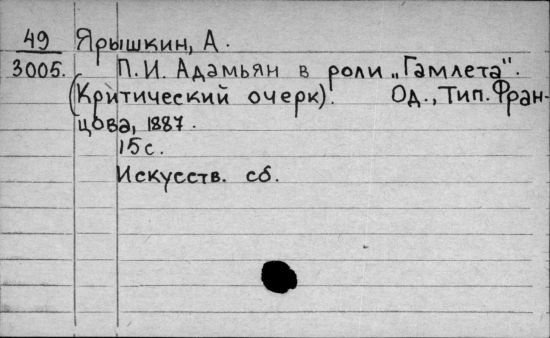 49 Ярышкин, А.
3005. П. И. Адамьян в роли „Гамлета".
(Критический очерк). Од., Тип. Фран-
цова, 1887.
15 с.
Искусств. сб.